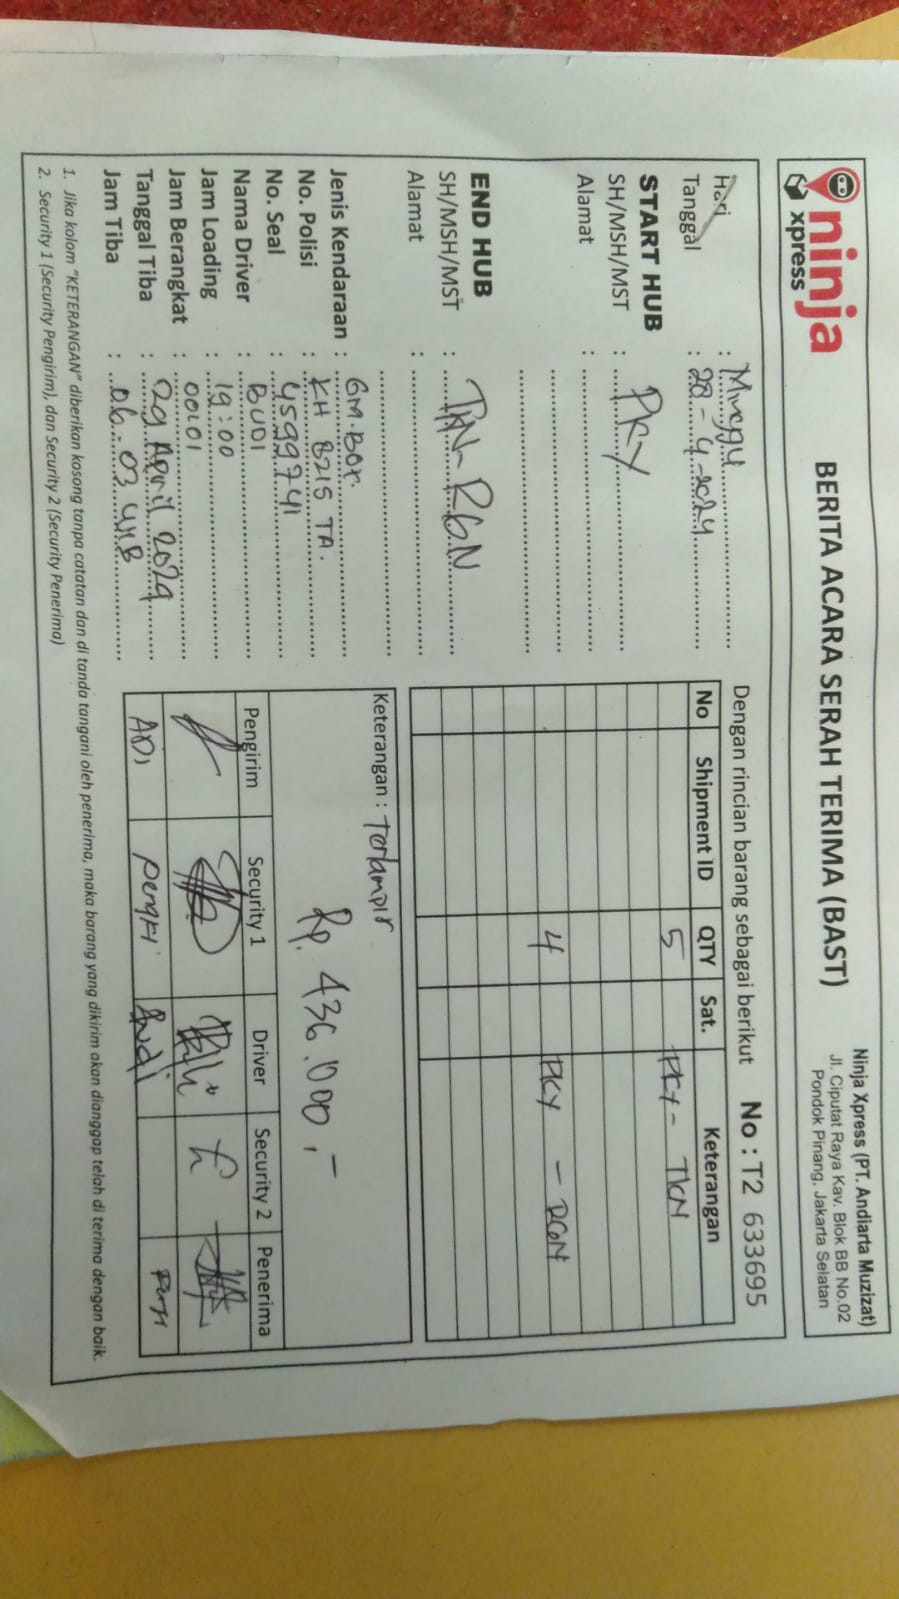 ninja
xpress
BERITA ACARA SERAH TERIMA (BAST)
Ninja Xpress (PT. Andiarta Muzizat)
Jl. Ciputat Raya Kav. Blok BB No.02
Pondok Pinang, Jakarta Selatan
Hari : Minggu
Tanggal : 28 - 4 - 2024
START HUB
SH/MSH/MST : PKY
Alamat :
END HUB
SH/MSH/MST : TKN - RGN
Alamat :
Jenis Kendaraan : GM. Box.
No. Polisi : KH 8215 TA.
No. Seal : 4599741
Nama Driver : BUDI
Jam Loading : 19:00
Jam Berangkat : 00:01
Tanggal Tiba : 29 April 2024
Jam Tiba : 06. 03
Dengan rincian barang sebagai berikut No : T2 633695
No Shipment ID QTY Sat. Keterangan
5 PKY - TKN
4 PKY - RGN
Keterangan : Terlampir
Rp. 436.000,-
Pengirim Security 1 Driver Security 2 Penerima
ADI Budi
1. Jika kolom "KETERANGAN" diberikan kosong tanpa catatan dan di tanda tangani oleh penerima, maka barang yang dikirim akan dianggap telah di terima dengan baik.
2. Security 1 (Security Pengirim), dan Security 2 (Security Penerima)